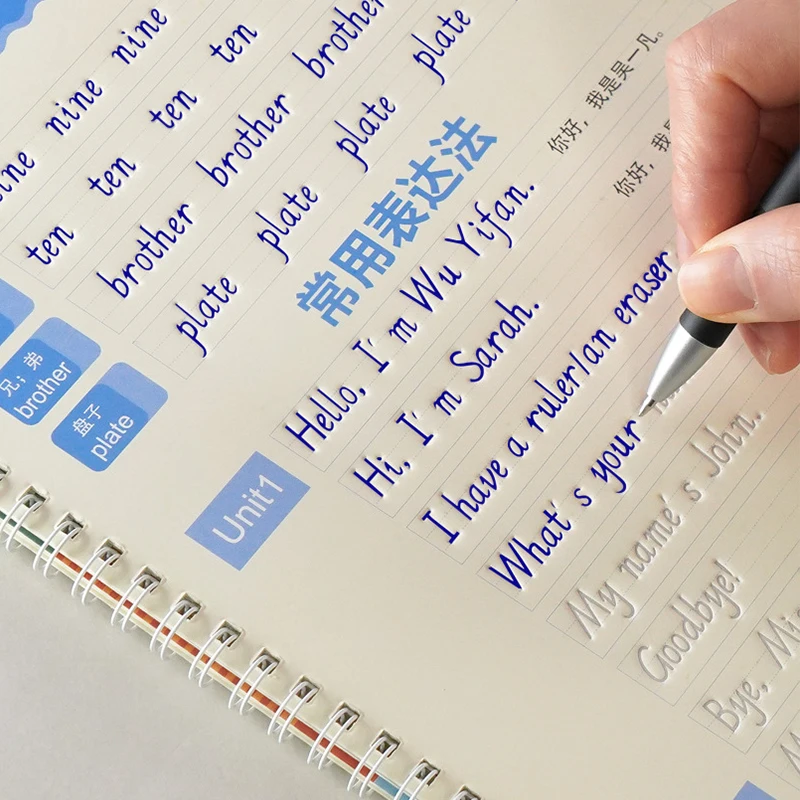 nine nine
ten ten ten ten
兄；弟 brother
brother brother brother
盘子 plate
plate plate plate plate
常用表达法
Unit1
Hello, I' m Wu Yifan. 你好，我是吴一凡。
Hi, I' m Sarah. 你好，我是
I have a ruler/an eraser
What' s your
My name' s John.
Goodbye!
Bye,